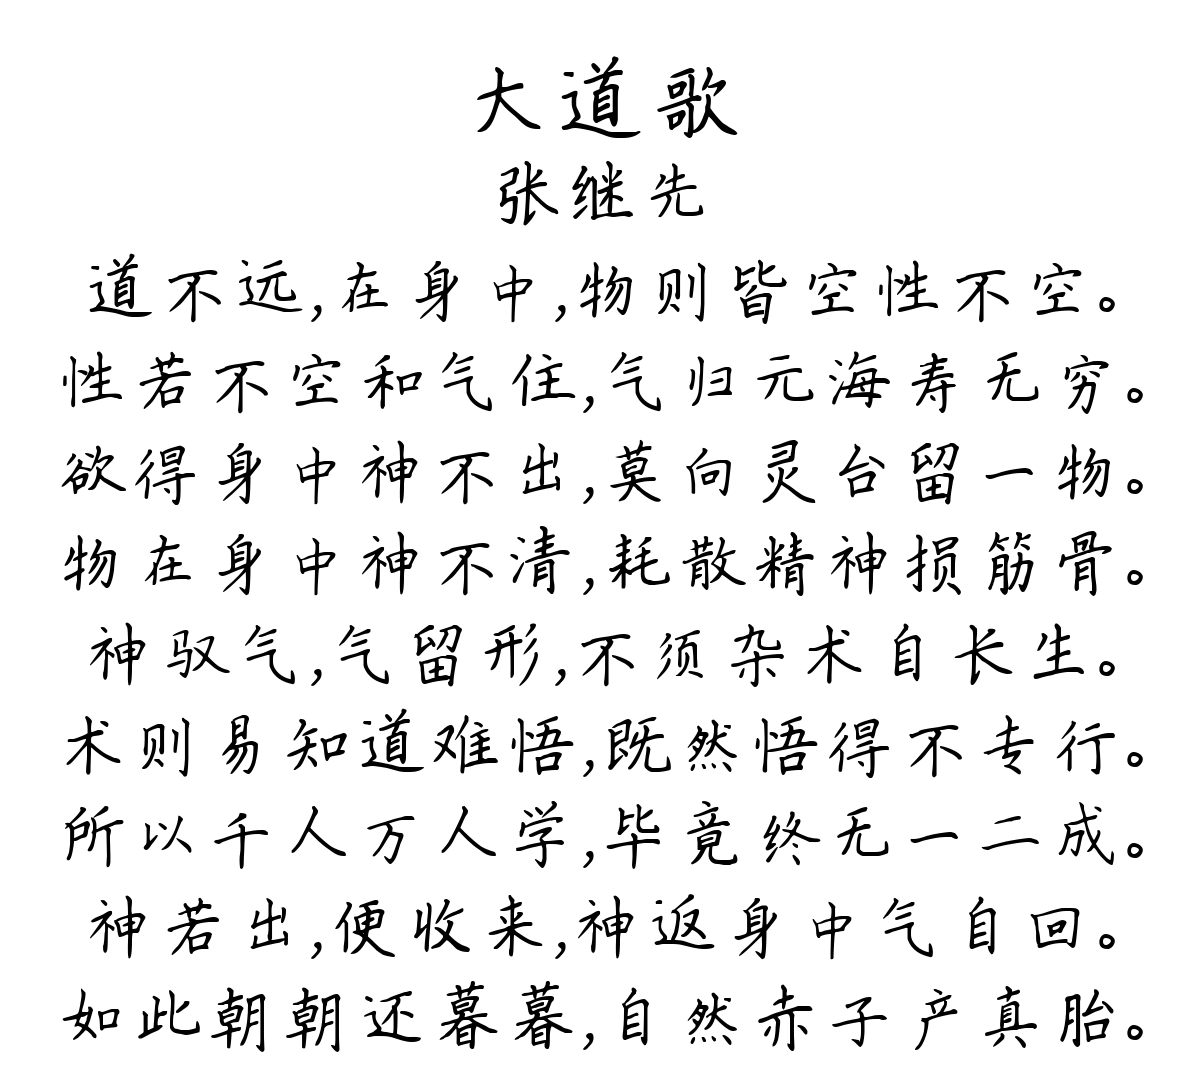 大道歌
张继先
道不远,在身中,物则皆空性不空。
性若不空和气住,气归元海寿无穷。
欲得身中神不出,莫向灵台留一物。
物在身中神不清,耗散精神损筋骨。
神驭气,气留形,不须杂术自长生。
术则易知道难悟,既然悟得不专行。
所以千人万人学,毕竟终无一二成。
神若出,便收来,神返身中气自回。
如此朝朝还暮暮,自然赤子产真胎。